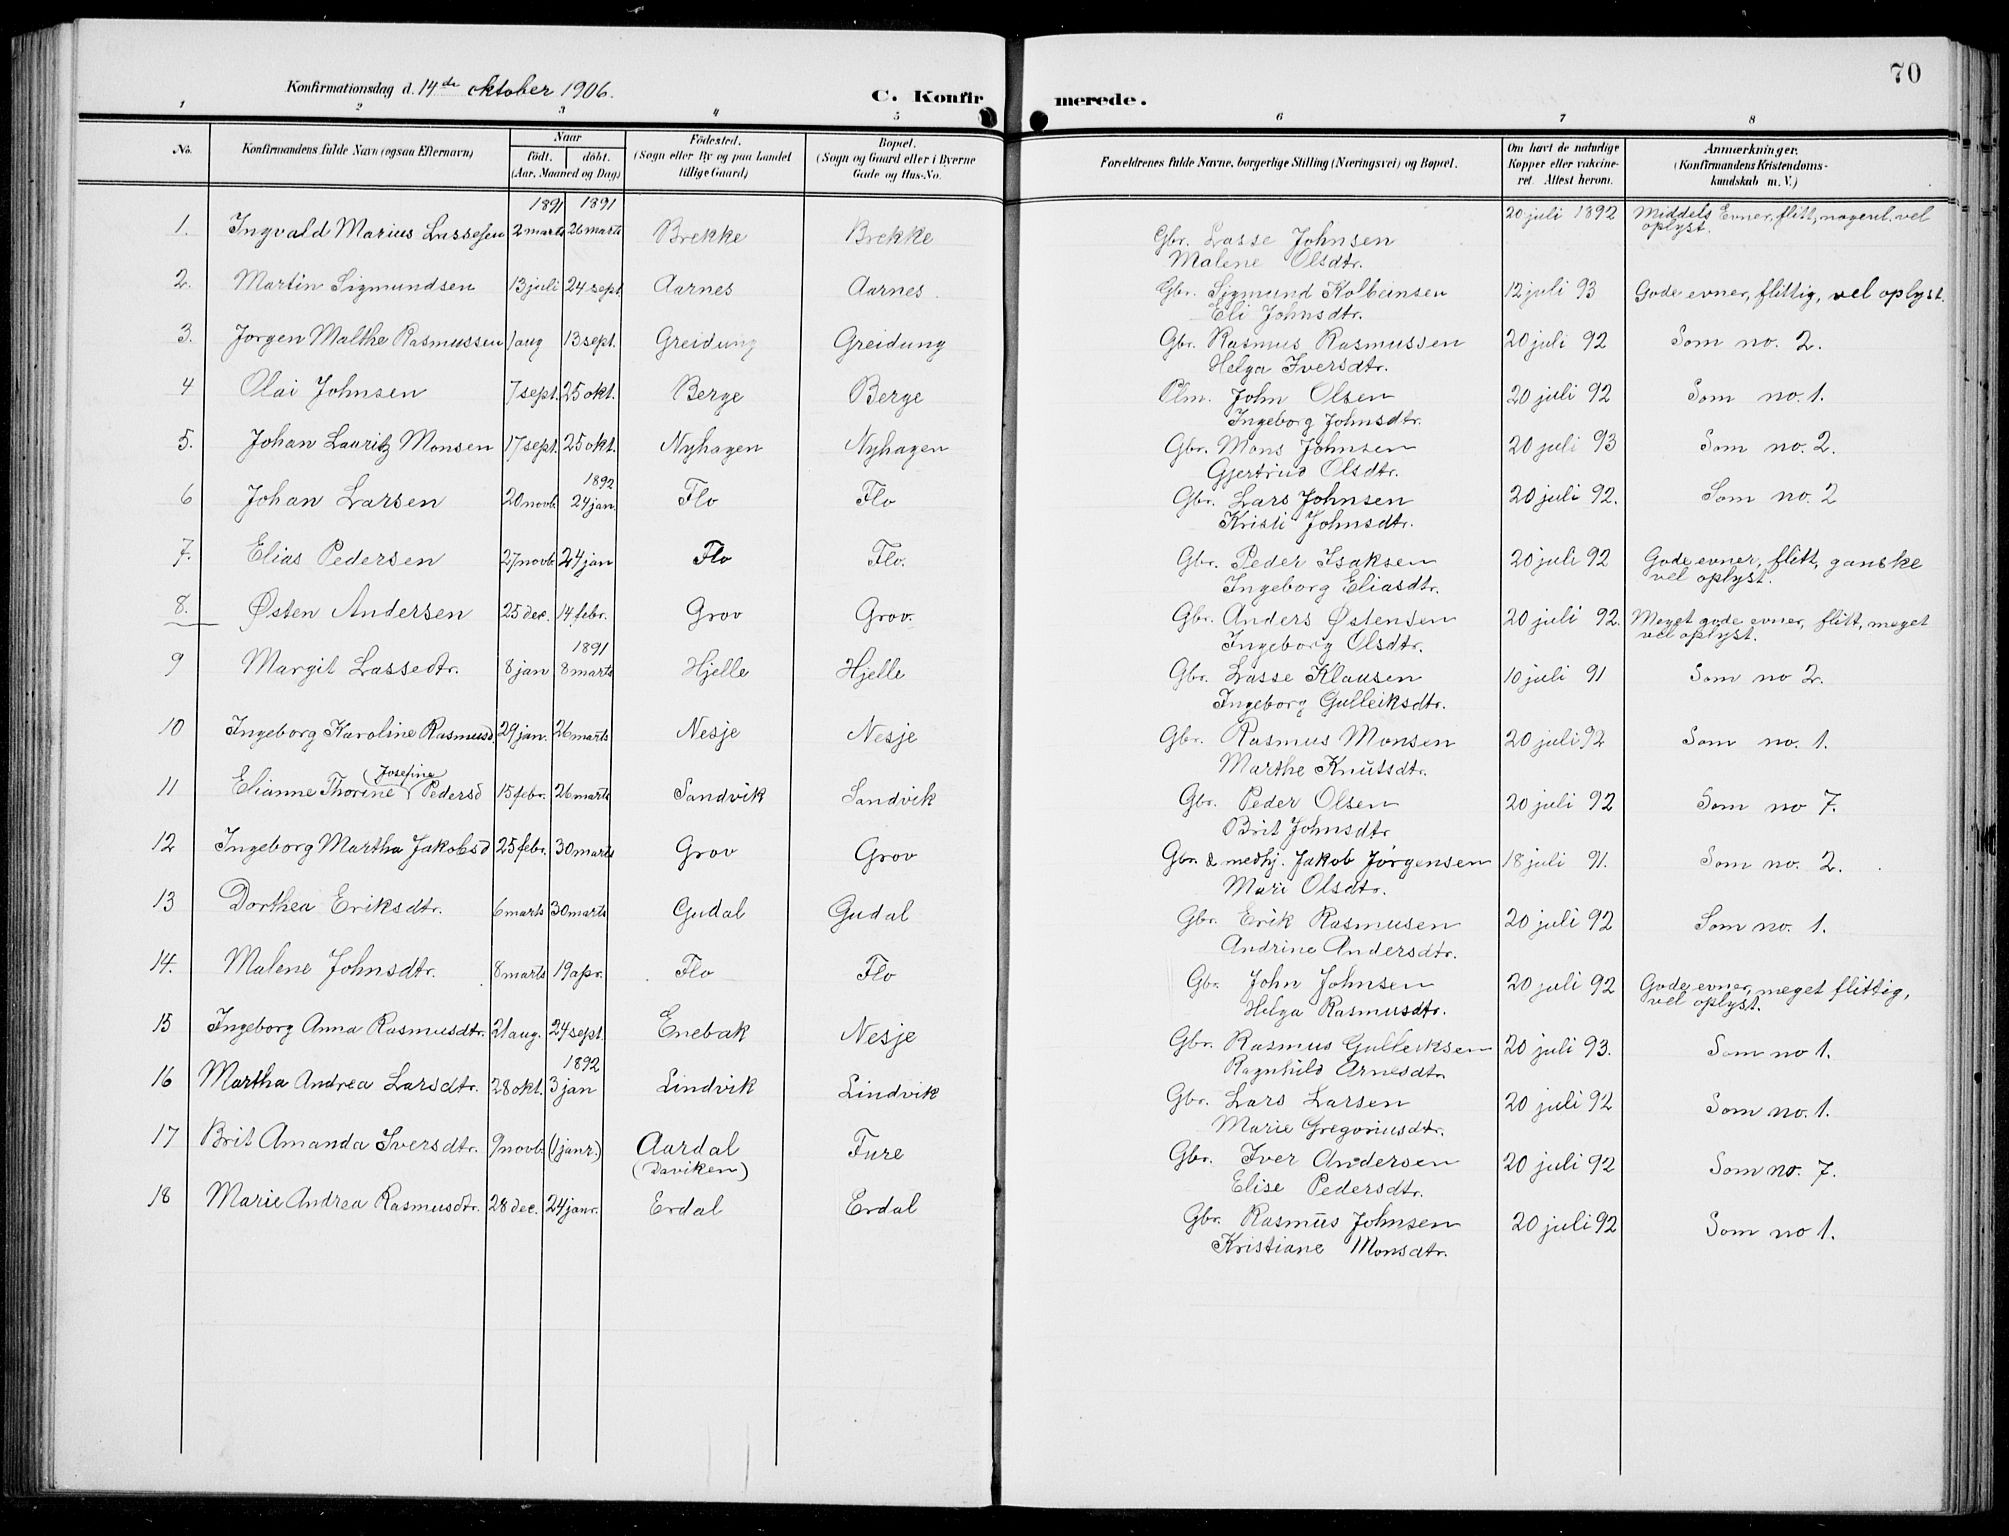 70
Konfirmationsdag d. 14de oktober 1906.
C. Konfirmerede.
1 2 3 4 5 6 7 8
No. | Konfirmandens fulde Navn (ogsaa Efternavn) | Naar født. døbt. (Aar, Maaned og Dag) | Födested. (Sogn eller By og paa Landet tillige Gaard) | Bopæl. (Sogn og Gaard eller i Byerne Gade og Hus-No. | Forældrenes fulde Navne, borgerlige Stilling (Næringsvei) og Bopæl. | Om havt de naturlige Kopper eller vakcineret. Attest herom. | Anmærkninger. (Konfirmandens Kristendomskundskab m. V.)
1891 1891
1. Ingvald Marius Lassesen 2 marts 26 marts Brekke Brekke Gbr. Lasse Johnsen 20 juli 1892 Middels Evner, flitt, nogenl. vel oplyst.
Malene Olsdtr.
2. Martin Sigmundsen 13 juli 24 sept. Aarnes Aarnes Gbr. Sigmund Kolbeinsen 12 juli 93 Gode evner, flittig, vel oplyst.
Eli Johnsdtr.
3. Jørgen Malthe Rasmussen 1 aug 13 sept. Greidung Greidung Gbr. Rasmus Rasmussen 20 juli 92 Som no. 2.
Helga Iversdtr.
4 Olai Johnsen 7 sept. 25 okt. Berge Berge Plm. John Olsen 20 juli 92 Som no. 1.
Ingeborg Johnsdtr.
5. Johan Lauritz Monsen 17 sept. 25 okt. Nyhagen Nyhagen Gbr. Mons Johnsen 20 juli 93 Som no. 2.
Gjertrud Olsdtr.
1892
6 Johan Larsen 20 novb. 24 jan. Flo Flo Gbr. Lars Johnsen 20 juli 92. Som no. 2
Kristi Johnsdtr.
7. Elias Pedersen 27 novb. 24 jan Flo Flo. Gbr. Peder Isaksen 20 juli 92 Gode evner, flitt, ganske vel oplyst.
Ingeborg Eliasdtr.
8. Østen Andersen 25 dec. 14 febr. Grov Grov. Gbr. Anders Østensen 20 juli 92. Meget gode evner, flitt, meget vel oplyst.
Ingeborg Olsdtr.
1891
9 Margit Lassedtr. 8 jan 8 marts Hjelle Hjelle Gbr. Lasse Klausen 10 juli 91 Som no 2.
Ingeborg Gulleiksdtr.
10 Ingeborg Karoline Rasmusd. 29 jan. 26 marts Nesje Nesje Gbr. Rasmus Monsen 20 juli 92 Som no. 1.
Marthe Knutsdtr.
11 Elianne Thorine (Josefine) Pedersd 15 febr. 26 marts Sandvik Sandvik Gbr. Peder Olsen 20 juli 92 Som no 7.
Brit Johnsdtr
12 Ingeborg Martha Jakobsd 25 febr. 30 marts Grov Grov Gbr. & medhj. Jakob Jørgensen 18 juli 91. Som no. 2.
Mari Olsdtr.
13 Dorthea Eriksdtr. 6 marts 30 marts Gudal Gudal Gbr. Erik Rasmusen 20 juli 92 Som no. 1.
Andrine Andersdtr.
14. Malene Johnsdtr. 8 marts 19 apr. Flo Flo Gbr. John Johnsen 20 juli 92 Gode evner, meget flittig, vel oplyst.
Helga Rasmusdtr.
15 Ingeborg Anna Rasmusdtr. 21 aug. 24 sept. Enebak Nesje Gbr. Rasmus Gulleiksen 20 juli 93. Som no 1.
Ragnhild Arnesdtr.
1892
16 Martha Andrea Larsdtr. 28 okt. 3 jan Lindvik Lindvik Gbr. Lars Larsen 20 juli 92 Som no. 1.
Marie Gregoriusdtr.
17 Brit Amanda Iversdtr. 9 novb. (1 janr.) Aardal (Daviken) Fure Gbr. Iver Andersen 20 juli 92 Som no. 7.
Elise Pedersdtr.
18 Marie Andrea Rasmusdtr. 28 dec. 24 janr. Erdal Erdal Gbr. Rasmus Johnsen 20 juli 92 Som no 1.
Kristiane Monsdtr.